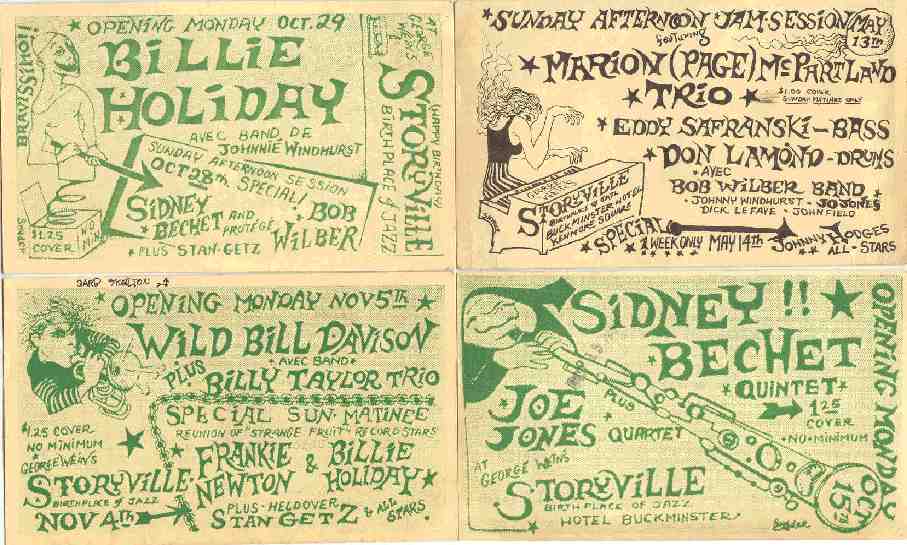 OPENING MONDAY OCT. 29
BILLIE
HOLIDAY
AVEC BAND DE
JOHNNIE WINDHURST
SUNDAY AFTERNOON SESSION
OCT 28th SPECIAL!
SIDNEY
BECHET AND
PROTÉGÉ
BOB
WILBER
PLUS STAN GETZ
BRAVISSIMO!!
$1.25
COVER
NO MIN
AT
GEORGE
WEIN'S
STORYVILLE
BIRTHPLACE of JAZZ
(HAPPY BIRTHDAY)
SUNDAY AFTERNOON JAM-SESSION MAY
13TH
featuring
MARION (PAGE) McPARTLAND
TRIO
$1.00 COVER
SUNDAY MATINEE ONLY
EDDY SAFRANSKI-BASS
DON LAMOND-DRUMS
AVEC
BOB WILBER BAND
JOHNNY WINDHURST - JO JONES
DICK LEFAVE - JOHN FIELD
GEORGE WEIN'S
STORYVILLE
BIRTHPLACE of JAZZ
BUCKMINSTER HOTEL
KENMORE SQUARE
SPECIAL
1 WEEK ONLY MAY 14TH
JOHNNY HODGES
ALL-STARS
OPENING MONDAY NOV 5TH
WILD BILL DAVISON
AVEC BAND
PLUS
BILLY TAYLOR TRIO
SPECIAL SUN. MATINEE
REUNION OF "STRANGE FRUIT" RECORD STARS
$1.25 COVER
NO MINIMUM
GEORGE WEIN'S
STORYVILLE
BIRTHPLACE of JAZZ
NOV 4th
FRANKIE
NEWTON
& BILLIE
HOLIDAY
PLUS-HELDOVER
STAN GETZ
& ALL
STARS
SIDNEY!!
BECHET
QUINTET
1 25
COVER
NO MINIMUM
PLUS
JOE
JONES QUARTET
AT
GEORGE WEIN'S
STORYVILLE
BIRTHPLACE OF JAZZ
HOTEL BUCKMINSTER
OPENING MONDAY
OCT
15th